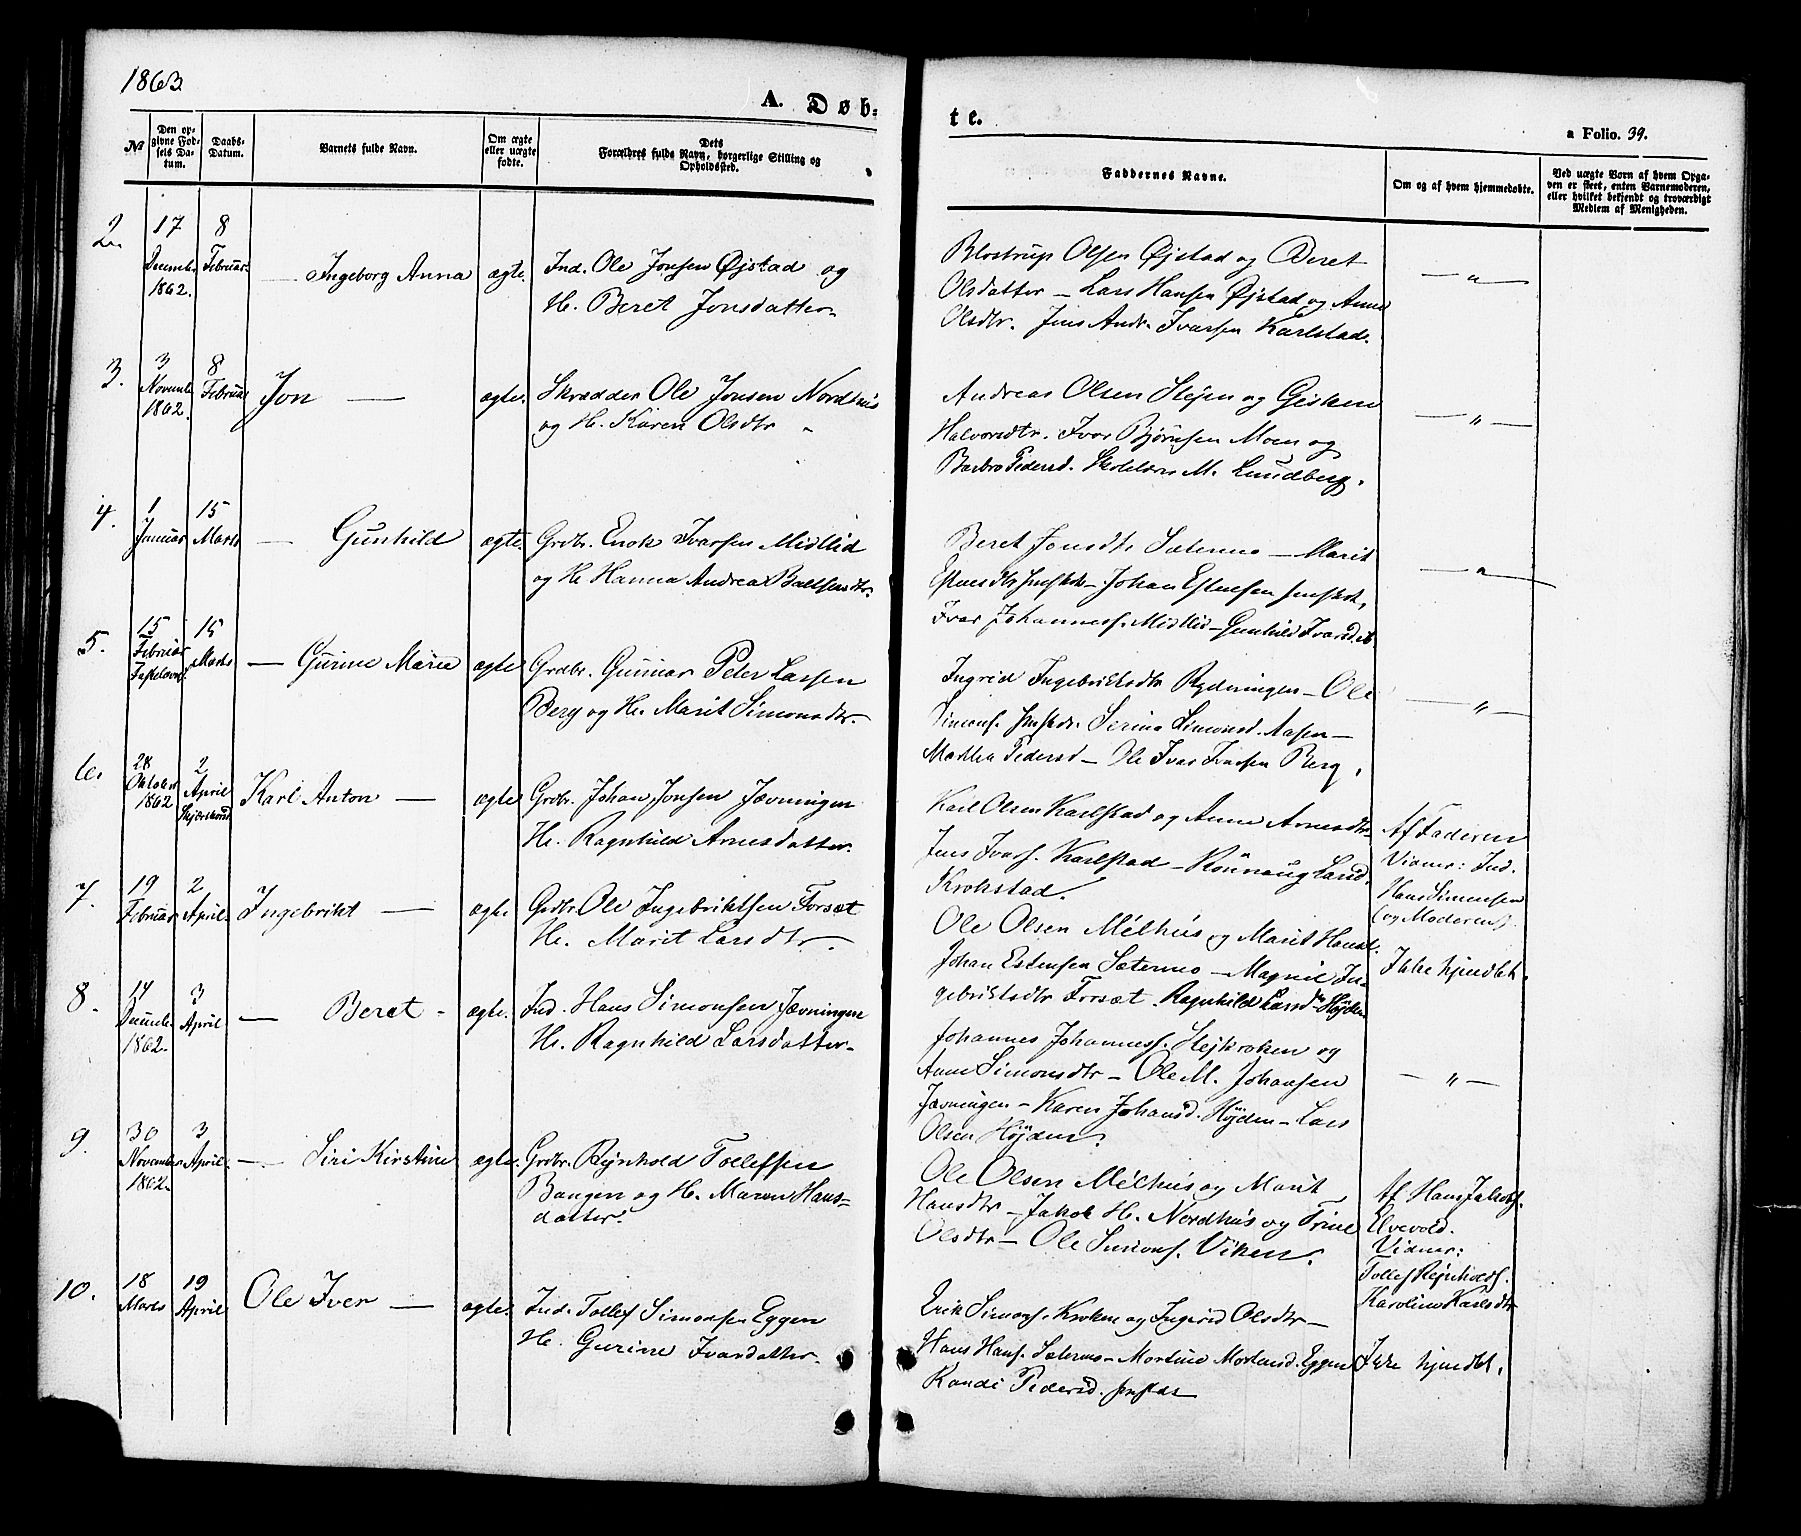 1863
A. Døb-
te.
a Folio. 39.
№
Den op-
givne Fød-
sels Da-
tum.
Daabs-
Datum.
Barnets fulde Navn.
Om ægte
eller uægte
fødte.
Dets
Forældres fulde Navn, borgerlige Stilling og
Opholdssted.
Faddernes Navne.
Om og af hvem hjemmedøbte.
Ved uægte Børn af hvem Opga-
ven er skeet, enten Barnemoderen,
eller hvilket bekjendt og troværdigt
Medlem af Menigheden.
2.
17
Decemb.
1862.
8
Februar
— Ingeborg Anna
ægte.
Ind. Ole Jonsen Øjstad og
H. Beret Jonsdatter.
Blostrup Olsen Øjstad og Beret
Olsdatter — Lars Hansen Øjstad og Anne
Olsdtr. Jens Andr. Ivarsen Karlstad.
— " —
3.
3
Novemb.
1862.
8
Februar
Jon —
ægte.
Skrædder Ole Jonsen Nordhus
og H. Karen Olsdtr
Andreas Olsen Stejen og Gisken
Halvorsdtr. Ivar Bjørnsen Moen og
Barbro Pedersd. M. Lundberg.
— " —
4.
1
Januar
15
Marts
— Gunhild
ægte.
Grdbr. Enok Ivarsen Midtlid
og H. Hanna Andrea Baltsersdtr.
Beret Jonsdtr Sætermo — Marit
Estensdtr — Johan Estensen
Ivar Johanness. Midtlid — Gunhild Ivarsd.
— " —
5.
15
Februar
Fastelavn
15
Marts
— Gurine Marie
ægte
Grdbr. Gunnar Peter Larsen
Berg og H. Marit Simonsdtr.
Ingrid Ingebriktsdtr Rydningen — Ole
Simons. Serina Simonsd. Aasen —
Marthea Pedersd — Ole Ivar Ivarsen Berg.
— " —
6.
28
Oktober
1862
2
April
Skjærthorsd.
Karl Anton —
ægte
Grdbr. Johan Jonsen Jævningen
H. Ragnhild Arnesdatter.
Karl Olsen Karlstad og Anne Arnesdtr
Jens Ivars. Karlstad — Rønnaug Larsd.
Krokstad.
Af Faderen
Vidner: Ind.
Hans Simonsen
(og Moderen).
7.
19
Februar
2
April.
Ingebrikt —
ægte.
Grdbr. Ole Ingebriktsen Forsæt
H. Marit Larsdtr.
Ole Olsen Mélhus og Marit Hansd.
Johan Estensen Sætermo — Magnil In-
gebriktsdtr Forsæt. Ragnhild Larsdtr Højden
Ikke hjmdbt.
8.
14
Decemb.
1862.
3
April
— Beret
ægte.
Ind. Hans Simonsen Jævningen
H. Ragnhild Larsdatter.
Johannes Johanness. Stejkroken og
Anne Simonsdtr — Ole M. Johansen
Jævningen — Karen Johansd. Højden — Lars
Olsen Højden.
— " —
9.
30
November
1862.
3
April.
— Siri Kirstine
ægte.
Grdbr. Rejnhold Tollefsen
Bangen og H. Maren Hans-
datter.
Ole Olsen Mélhus og Marit
Hansdtr — Jakob H. Nordhus og Trine
Olsdtr — Ole Simons. Viken.
Af Hans Jakobs.
Elvevold.
Vidner:
Tollef Rejnholds.
Karoline Karlsdtr
10.
18
Marts
19
April
Ole Iver —
ægte.
Ind. Tollef Simonsen Eggen
H. Gurine Ivarsdatter.
Erik Simons. Kroken og Ingrid Olsdtr —
Hans Hans. Sætermo — Martine Mortensd. Eggen
Randi Pedersd.
Ikke hjmdbt.